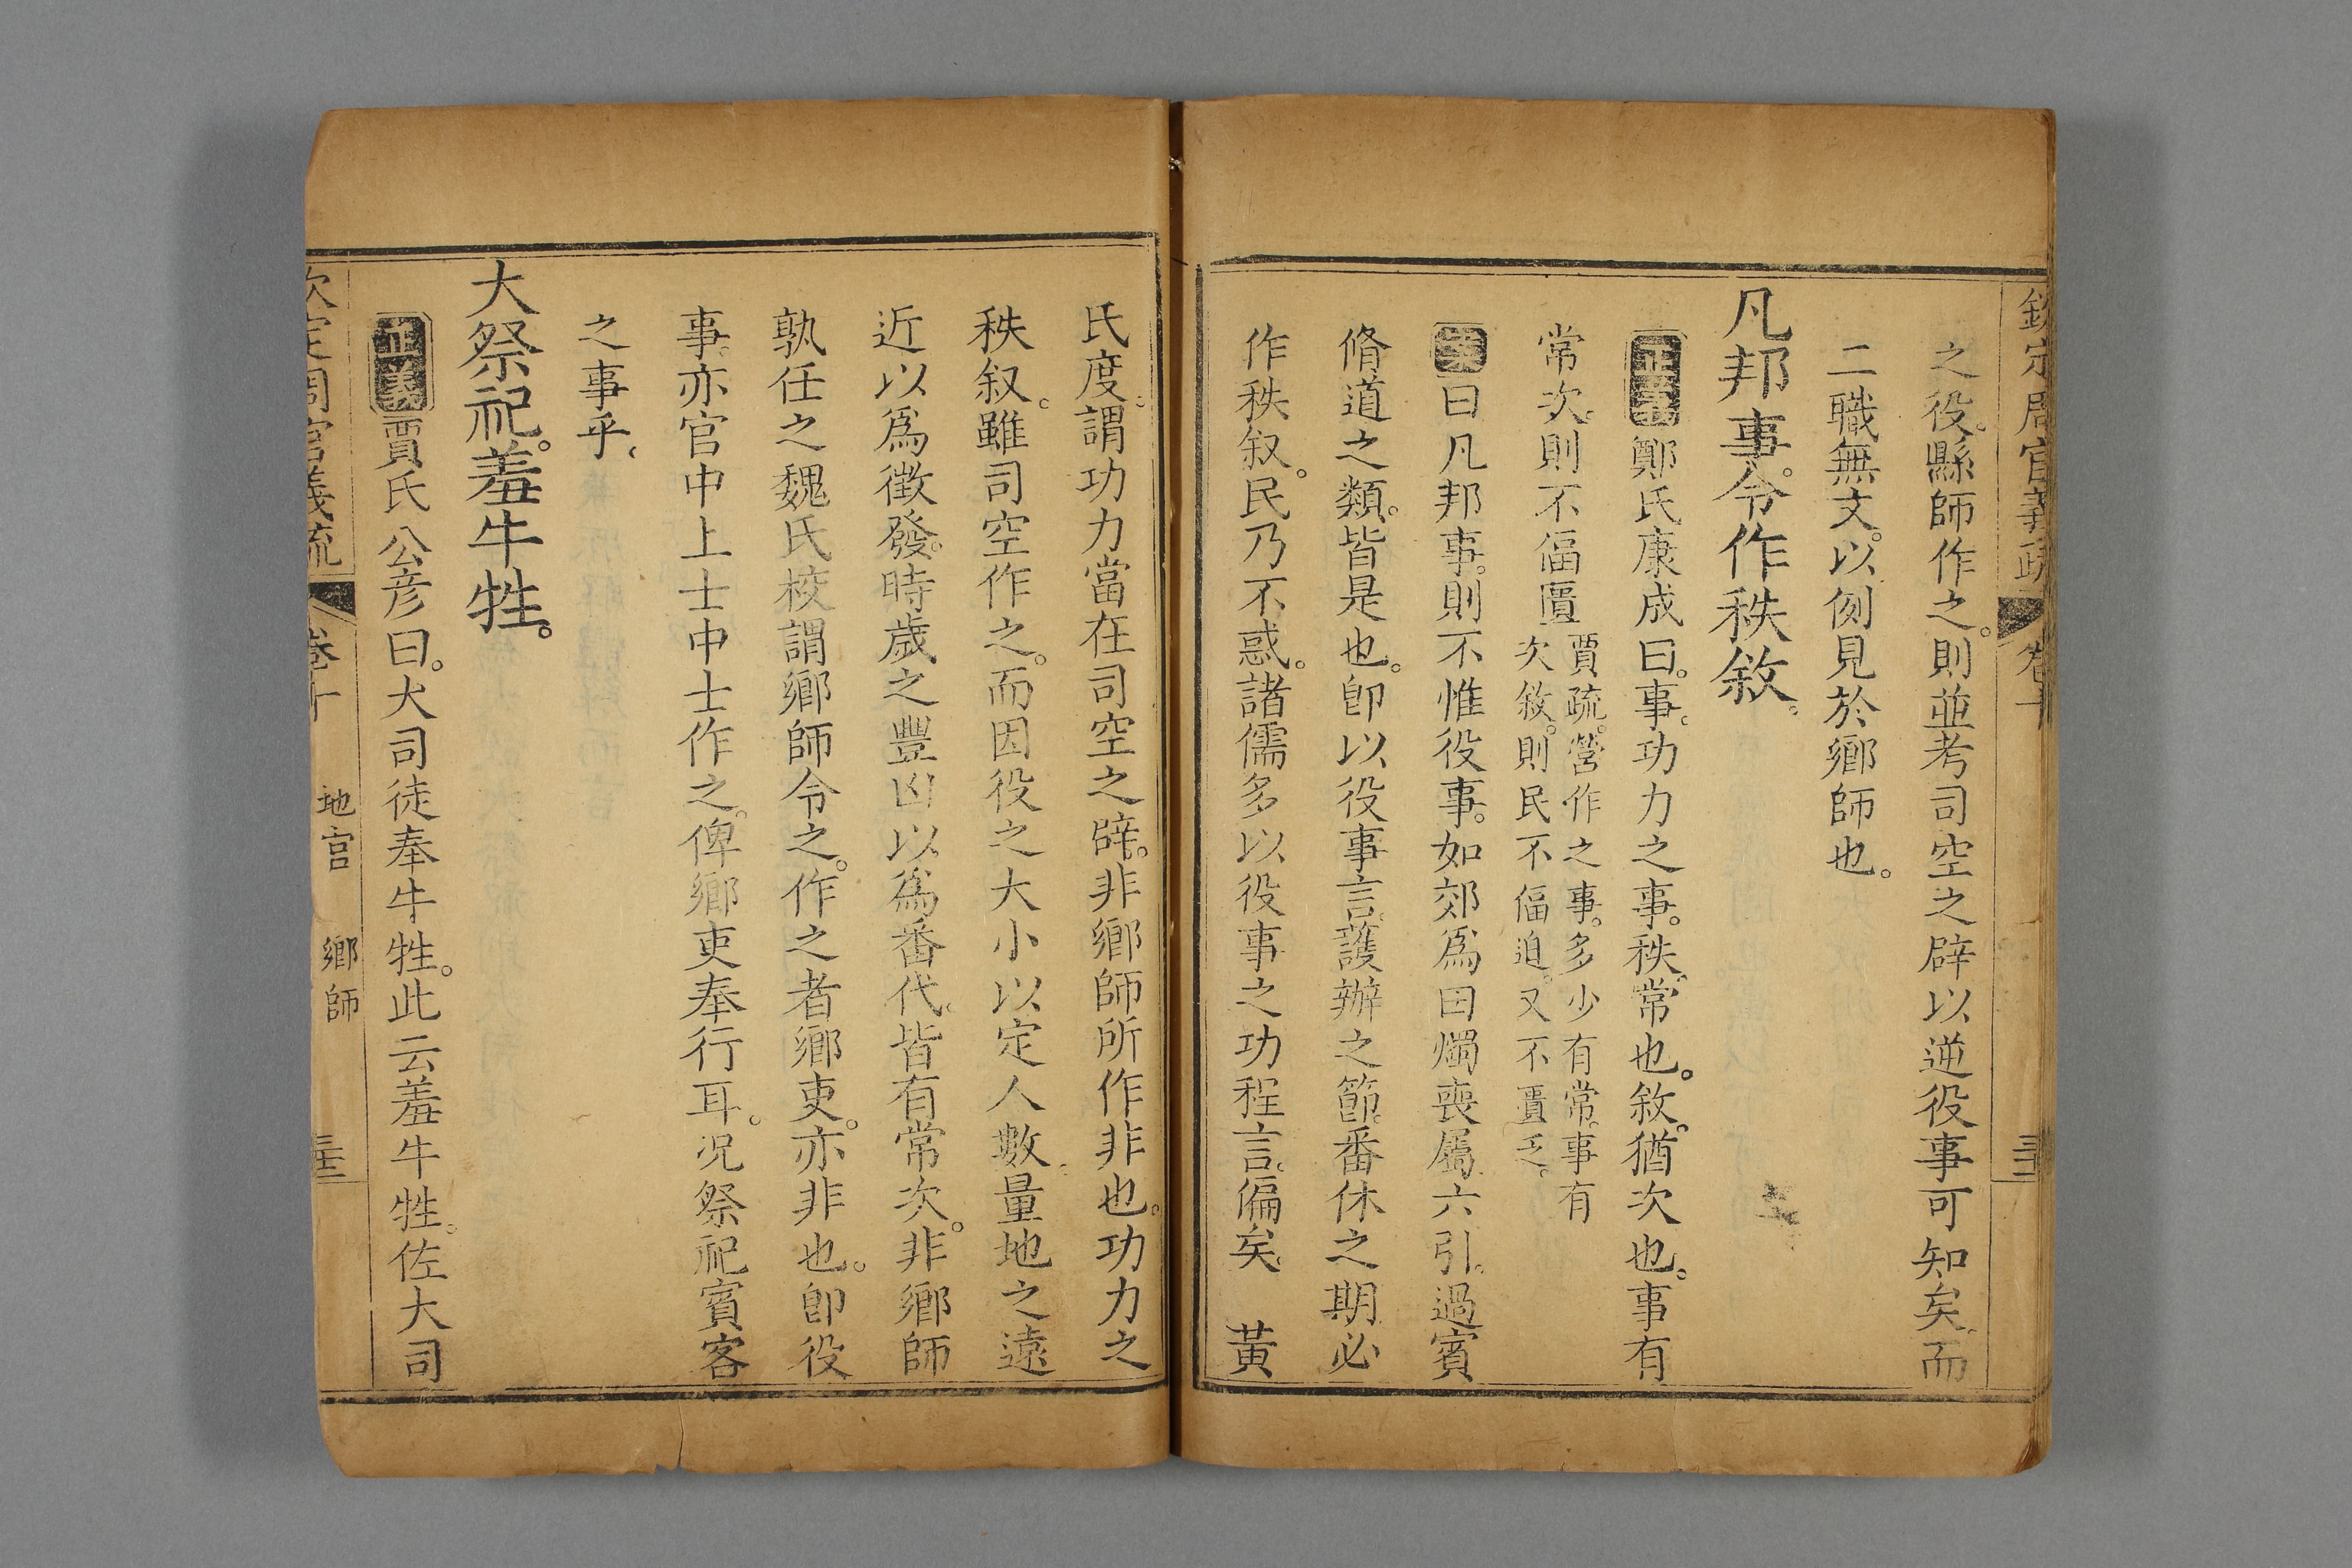 欽定周官義疏 卷十
之役。縣師作之。則並考司空之辟以逆役事可知矣。而
二職無文。以例見於鄉師也。
凡邦事。令作秩敘。
正義 鄭氏康成曰。事。功力之事。秩。常也。敘。猶次也。事有
常次。則不偪匱 賈疏。營作之事。多少有常。事有
次敘。則民不偪迫。又不匱乏。
案 曰凡邦事。則不惟役事。如郊爲田燭喪屬六引。過賓
脩道之類。皆是也。卽以役事言。護辦之節。番休之期必
作秩叙。民乃不惑。諸儒多以役事之功程言。偏矣。 黃
氏度。謂功力當在司空之辟。非鄉師所作非也。功力之
秩叙。雖司空作之。而因役之大小以定人數。量地之遠
近以爲徵發。時歲之豐凶以爲番代。皆有常次。非鄉師
孰任之魏氏校謂鄉師令之。作之者鄉吏。亦非也。卽役
事。亦官中上士中士作之。俾鄉吏奉行耳。況祭祀賓客
之事乎。
大祭祀。羞牛牲。
正義 賈氏公彦曰。大司徒奉牛牲。此云羞牛牲。佐大司
欽定周官義疏 卷十 地官 鄉師